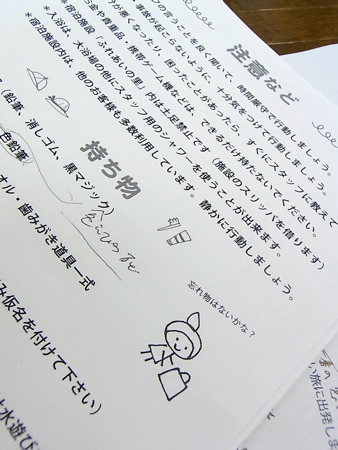 注意など
のを良く聞いて、時間厳守で行動しましょう。
事故が起こらないように、十分気をつけて行動しましょう。
が悪くなったり、困ったことがあったら、すぐにスタッフに教えて
や貴重品、携帯ゲーム機などは、できるだけ持たないでください。
＊宿泊施設「ふれあいの里」内は土足禁止です（施設のスリッパを借ります）
＊入浴は、大浴場の他にスタッフ用のシャワーを使うことが出来ます。
＊宿泊施設内は、他のお客様も多数利用しています。静かに行動しましょう。
持ち物
（鉛筆、消しゴム、黒マジック）
色鉛筆
オル・歯みがき道具一式
忘れ物はないかな？
み仮名を付けて下さい）
水遊び
い旅に出発しま